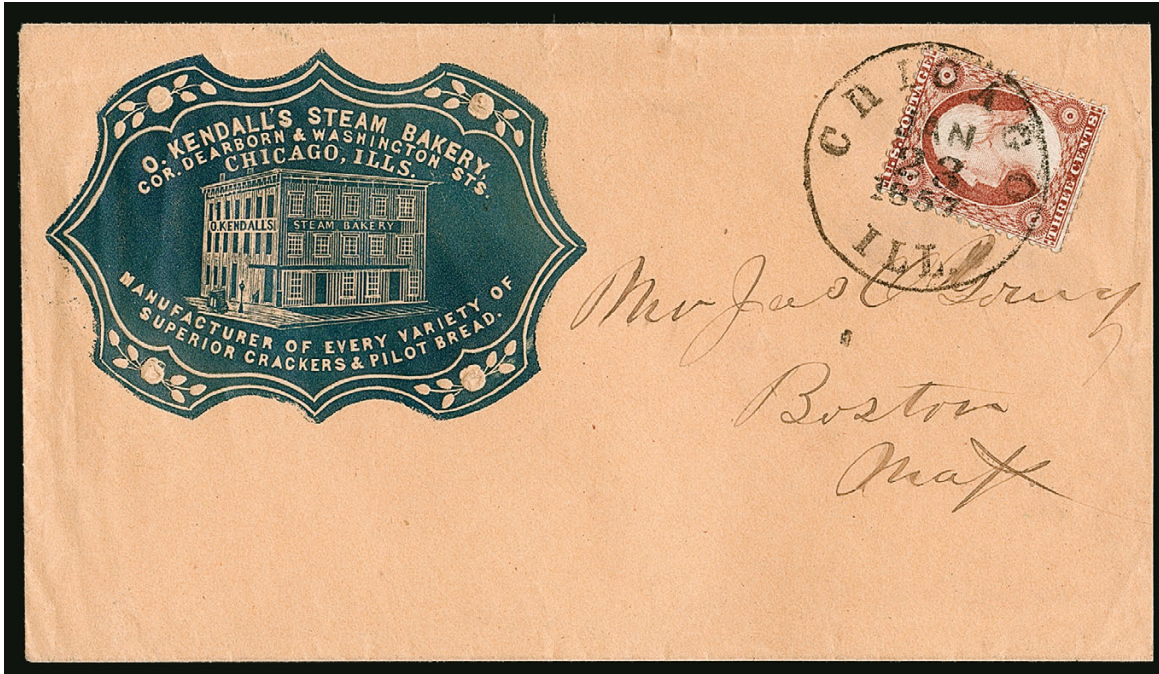 O. KENDALL'S STEAM BAKERY,
COR. DEARBORN & WASHINGTON STS.
CHICAGO, ILLS.
O. KENDALLS STEAM BAKERY
MANUFACTURER OF EVERY VARIETY OF
SUPERIOR CRACKERS & PILOT BREAD.
CHICAGO
ILL
U.S. POSTAGE
THREE CENTS
Mr Jas
Boston
Mass